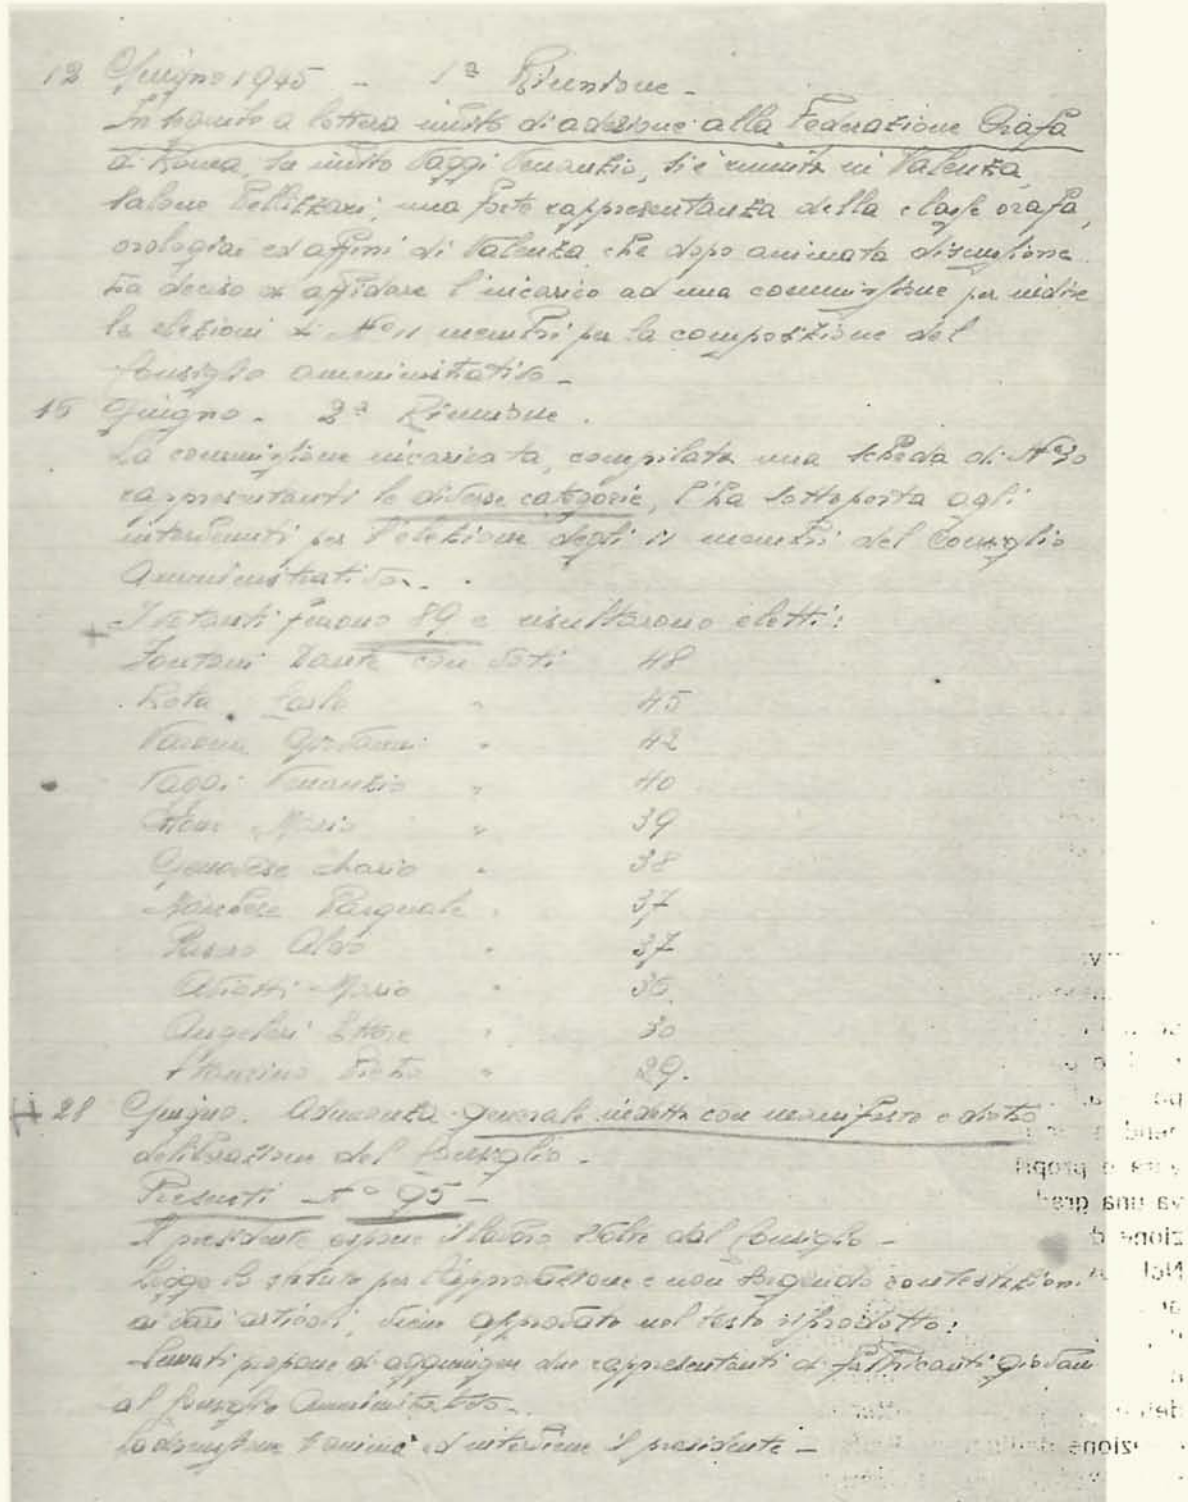 12 Giugno 1945 - 1ª Riunione -
In seguito a lettera invito di adesione alla Federazione Orafa
di Roma, su invito Vaggi Venanzio, si è riunita in Valenza,
salone Pellizzari, una forte rappresentanza della classe orafa,
orologiai ed affini di Valenza che dopo animata discussione
ha deciso di affidare l'incarico ad una commissione per indire
le elezioni di Nº 11 membri per la composizione del
Consiglio amministrativo -
15 Giugno - 2ª Riunione.
La commissione incaricata, compilata una scheda di Nº 30
rappresentanti le diverse categorie, l'ha sottoposta agli
intervenuti per l'elezione degli 11 membri del Consiglio
Amministrativo. -
+ I votanti furono 89 e risultarono eletti:
Fontani Dante con voti 48
Rota Carlo " 45
Varona Giovanni " 42
Vaggi Venanzio " 40
Mario " 39
Genovese Mario " 38
Pasquale " 37
Aldo " 37
Mario "
Ettore " 30
Pietro " 29.
+ 28 Giugno. Adunanza generale indetta con manifesto e dietro
deliberazione del Consiglio -
Presenti Nº 95 -
Il presidente espone il lavoro svolto dal Consiglio -
Legge lo statuto per l'approvazione e non sorgendo contestazioni
ai vari articoli, viene approvato nel testo riprodotto:
Lunati propone di aggiungere due rappresentanti di fabbricanti giovani
al Consiglio Amministrativo -
La discussione s'anima ed interviene il presidente -